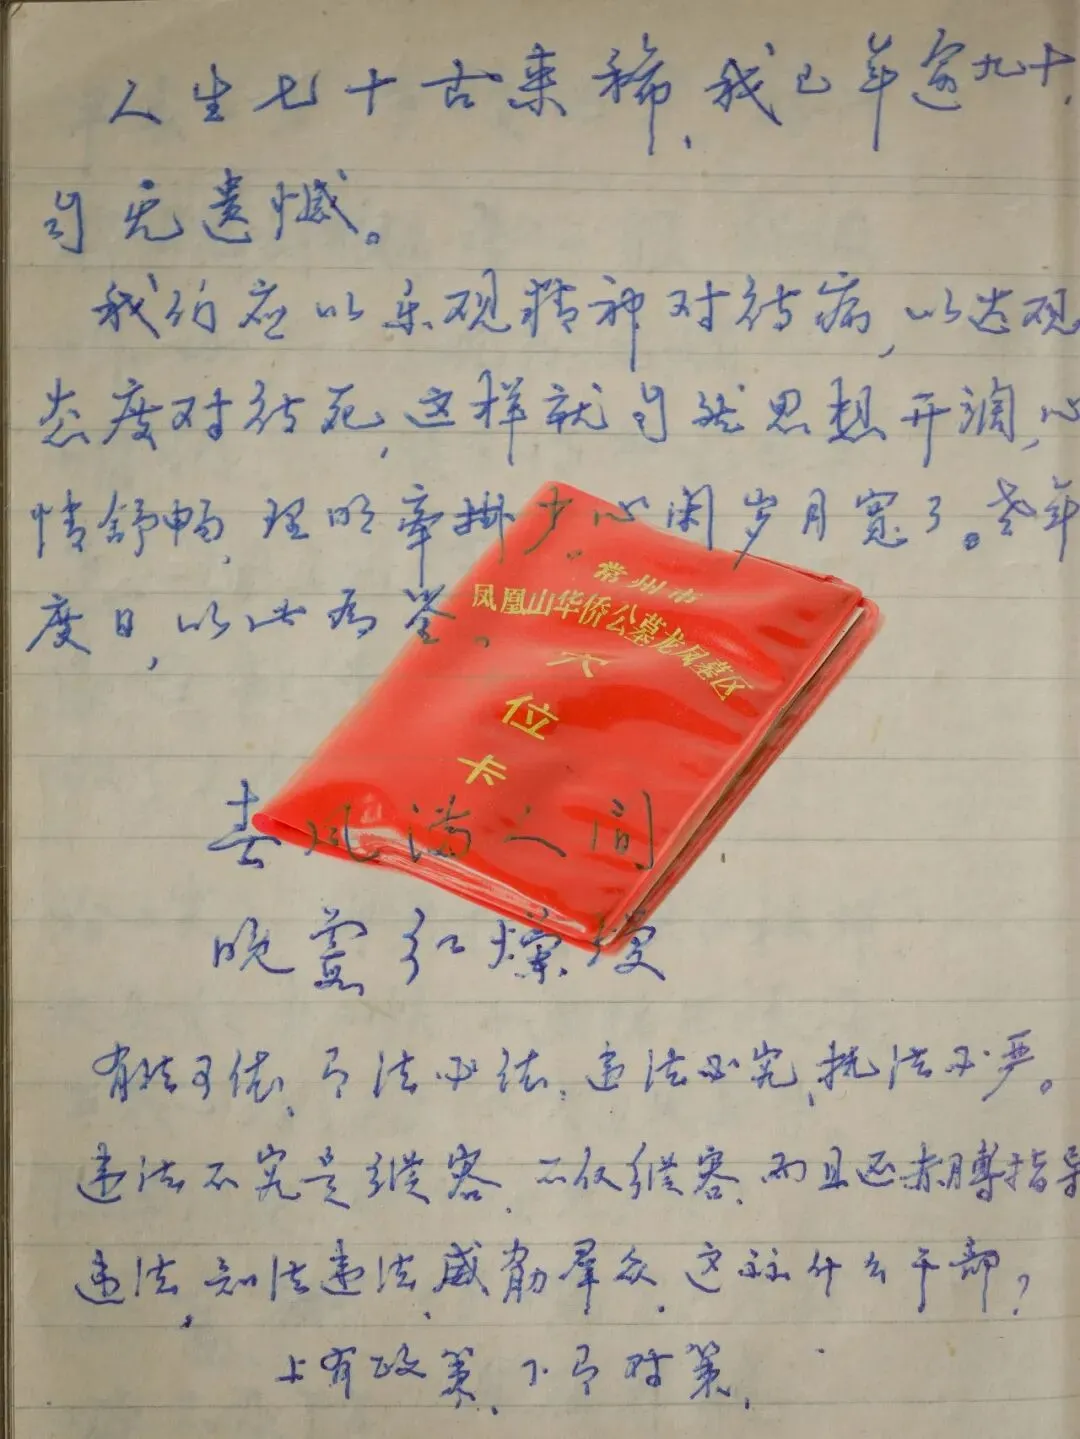 人生七十古来稀,我已年逾九十,
自无遗憾。
我们应以乐观精神对待病,以达观
态度对待死,这样就自然思想开阔,心
情舒畅,理明牵掛少。心闲岁月宽了。老年
度日,以此为鉴。
常州市
凤凰山华侨公墓龙凤墓区
穴
位
卡
春风满人间
晚霞红灿熳
有法可依,有法必依,违法必究,执法必严。
违法不究是纵容,不仅纵容,而且还赤膊指导
违法,知法违法,威胁群众,这称什么干部?
上有政策,下有对策,